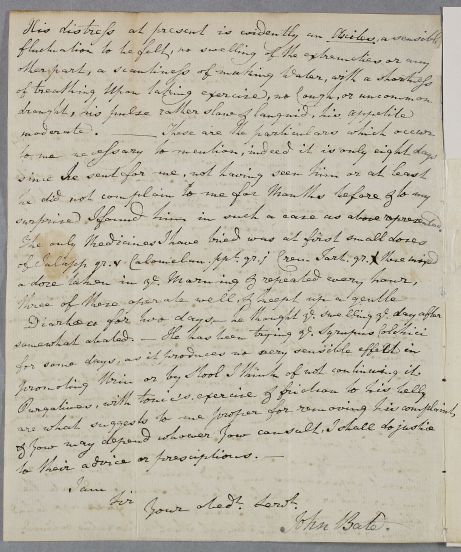 His distress at present is evidently an Ascites, a sensible
fluctuation to be felt, no swelling of the extremeties or any
other part, a scantiness of making Water, with a shortness
of breathing upon taking exercise, no Cough, or uncommon
draught, his pulse rather slow & languid, his appetite
moderate. — These are the particulars which occurr
to me necessary to mention, indeed it is only eight days
since he sent for me, not having seen him or at least
he did not complain to me for Months before & to my
surprise I found him in such a case as above represented,
The only Medicines I have tried was at first small doses
of Jalapp gr. v Calomelan. ppt. gr. j Crem. Tart. gr. x
a dose taken in ye. Morning & repeated every hour,
three of these operate well, & keept up a gentle
Diarhea for two days — he thought ye. swelling ye. day after
somewhat abated. — He has been trying ye. Syrupus Colchici
for some days, as it produces no very sensible effect in
promoting Urin or by Stool I think of not continuing it
Purgatives, with tonics, exercise & friction to his belly
are what suggests to me proper for removing his complaint,
& you may depend whoever you consult, I shall do justice
to their advice or prescriptions. —
I am
Sir
Your Obedt. Servt.
John Bate.